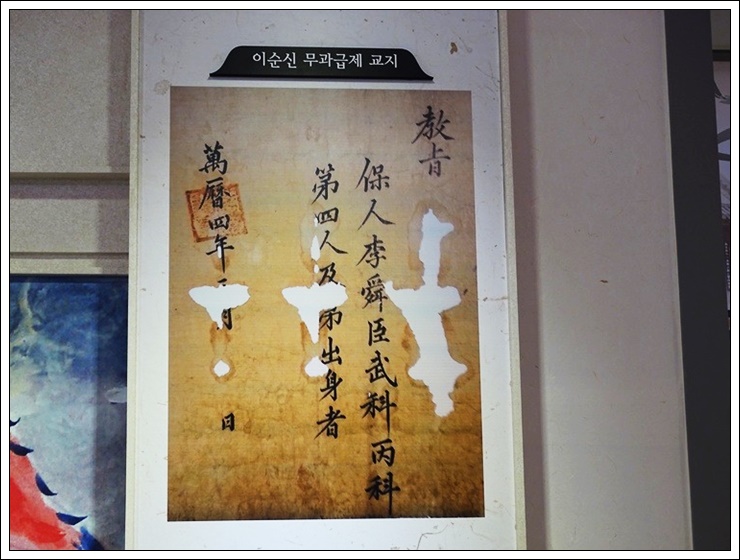 이순신 무과급제 교지
敎旨
保人李舜臣武科丙科
第四人及第出身者
萬曆四年 月 日